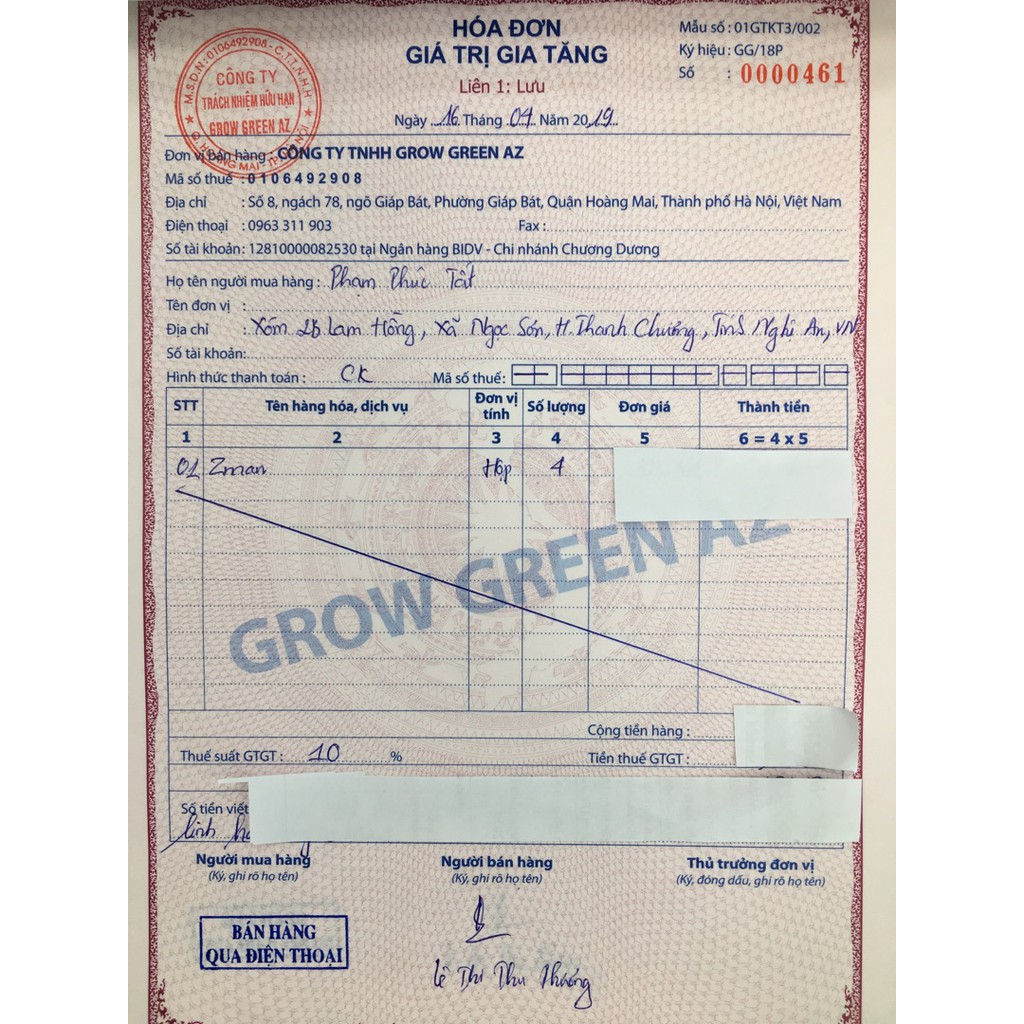 HÓA ĐƠN
GIÁ TRỊ GIA TĂNG
Liên 1: Lưu
Ngày 16 Tháng 04 Năm 2019
Mẫu số : 01GTKT3/002
Ký hiệu : GG/18P
Số : 0000461
M.S.D.N: 0106492908 - C.T.T.N.H.H
CÔNG TY
TRÁCH NHIỆM HỮU HẠN
GROW GREEN AZ
Q. HOÀNG MAI - TP. HÀ NỘI
Đơn vị bán hàng : CÔNG TY TNHH GROW GREEN AZ
Mã số thuế : 0106492908
Địa chỉ : Số 8, ngách 78, ngõ Giáp Bát, Phường Giáp Bát, Quận Hoàng Mai, Thành phố Hà Nội, Việt Nam
Điện thoại : 0963 311 903 Fax :
Số tài khoản : 12810000082530 tại Ngân hàng BIDV - Chi nhánh Chương Dương
Họ tên người mua hàng : Phạm Phúc Tất
Tên đơn vị :
Địa chỉ : Xóm Lam Hồng, Xã Ngọc Sơn, H. Thanh Chương, Tỉnh Nghệ An, VN
Số tài khoản:
Hình thức thanh toán : CK Mã số thuế:
STT Tên hàng hóa, dịch vụ Đơn vị tính Số lượng Đơn giá Thành tiền
1 2 3 4 5 6 = 4 x 5
01 Zman Hộp 4
GROW GREEN AZ
Cộng tiền hàng :
Thuế suất GTGT : 10 % Tiền thuế GTGT :
Số tiền viết
Người mua hàng Người bán hàng Thủ trưởng đơn vị
(Ký, ghi rõ họ tên) (Ký, ghi rõ họ tên) (Ký, đóng dấu, ghi rõ họ tên)
BÁN HÀNG
QUA ĐIỆN THOẠI
Lê Thị Thu Phương